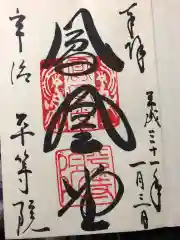 奉拝
平成三十一年
一月三日
鳳凰堂
宇治
平等院